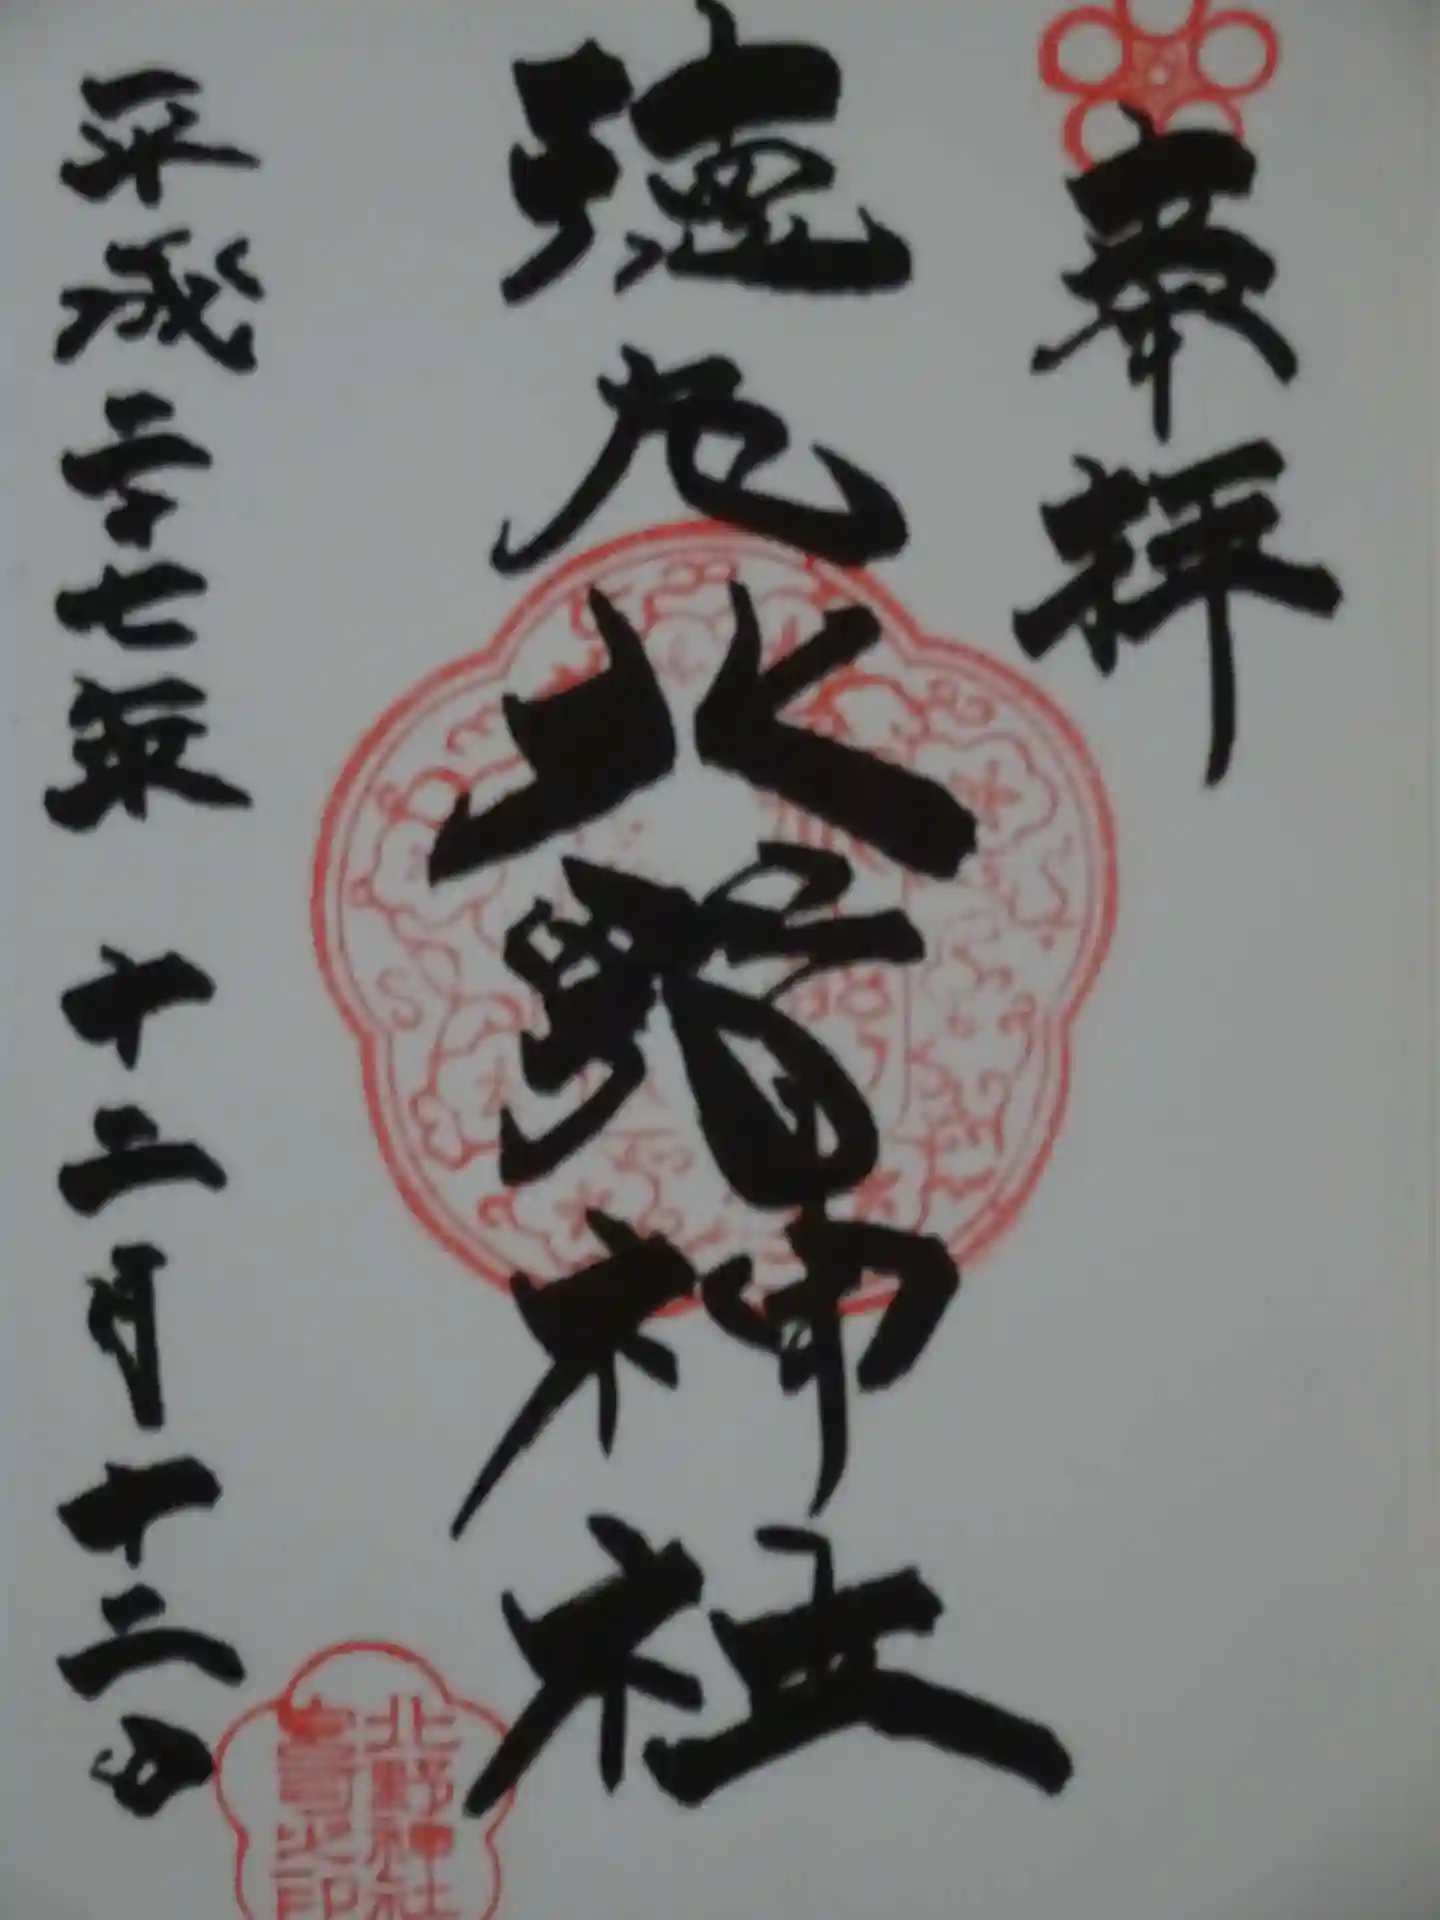 奉拝
厄北野神社
平成二十七年 十二月十二日
北野神社
宮司之印